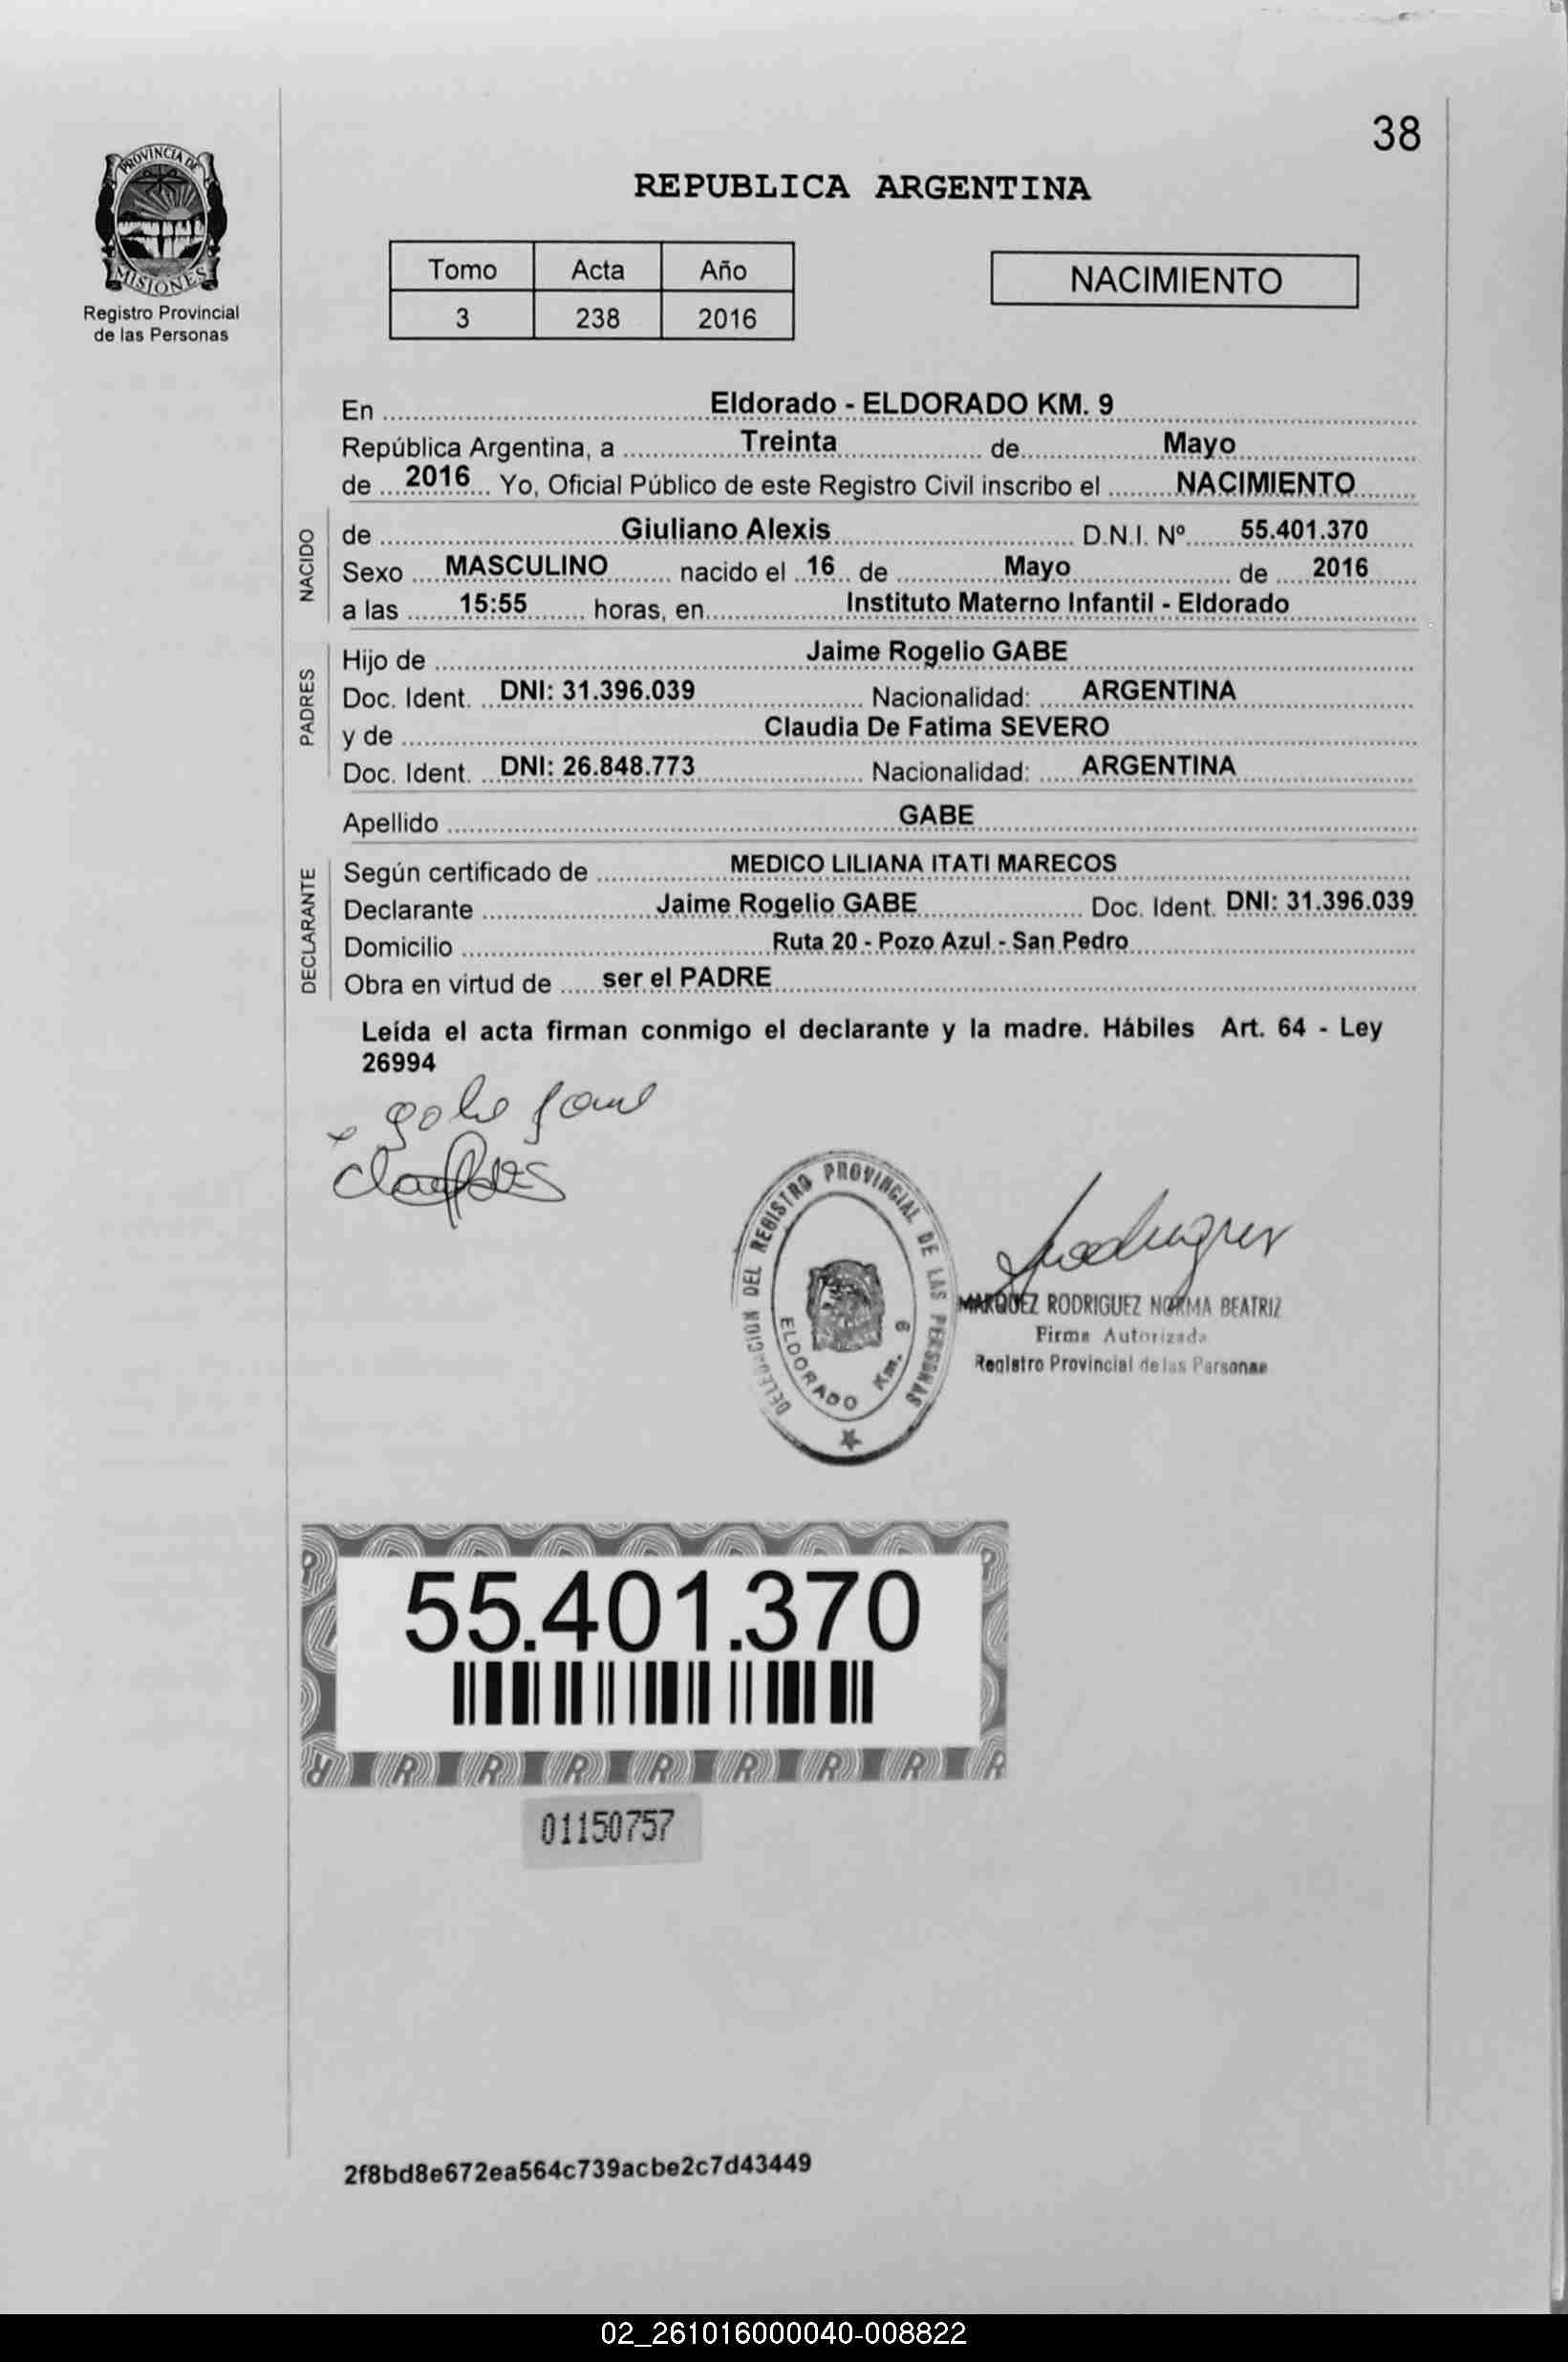 38
PROVINCIA DE
MISIONES
Registro Provincial
de las Personas
REPUBLICA ARGENTINA
Tomo Acta Año
3 238 2016
NACIMIENTO
En Eldorado - ELDORADO KM. 9
República Argentina, a Treinta de Mayo
de 2016 Yo, Oficial Público de este Registro Civil inscribo el NACIMIENTO
NACIDO
de Giuliano Alexis D.N.I. Nº 55.401.370
Sexo MASCULINO nacido el 16 de Mayo de 2016
a las 15:55 horas, en Instituto Materno Infantil - Eldorado
PADRES
Hijo de Jaime Rogelio GABE
Doc. Ident. DNI: 31.396.039 Nacionalidad: ARGENTINA
y de Claudia De Fatima SEVERO
Doc. Ident. DNI: 26.848.773 Nacionalidad: ARGENTINA
Apellido GABE
DECLARANTE
Según certificado de MEDICO LILIANA ITATI MARECOS
Declarante Jaime Rogelio GABE Doc. Ident. DNI: 31.396.039
Domicilio Ruta 20 - Pozo Azul - San Pedro
Obra en virtud de ser el PADRE
Leída el acta firman conmigo el declarante y la madre. Hábiles Art. 64 - Ley
26994
DELEGACION DEL REGISTRO PROVINCIAL DE LAS PERSONAS
ELDORADO Km. 9
MARQUEZ RODRIGUEZ NORMA BEATRIZ
Firma Autorizada
Registro Provincial de las Personas
55.401.370
R R R R R R R R R
01150757
2f8bd8e672ea564c739acbe2c7d43449
02_261016000040-008822